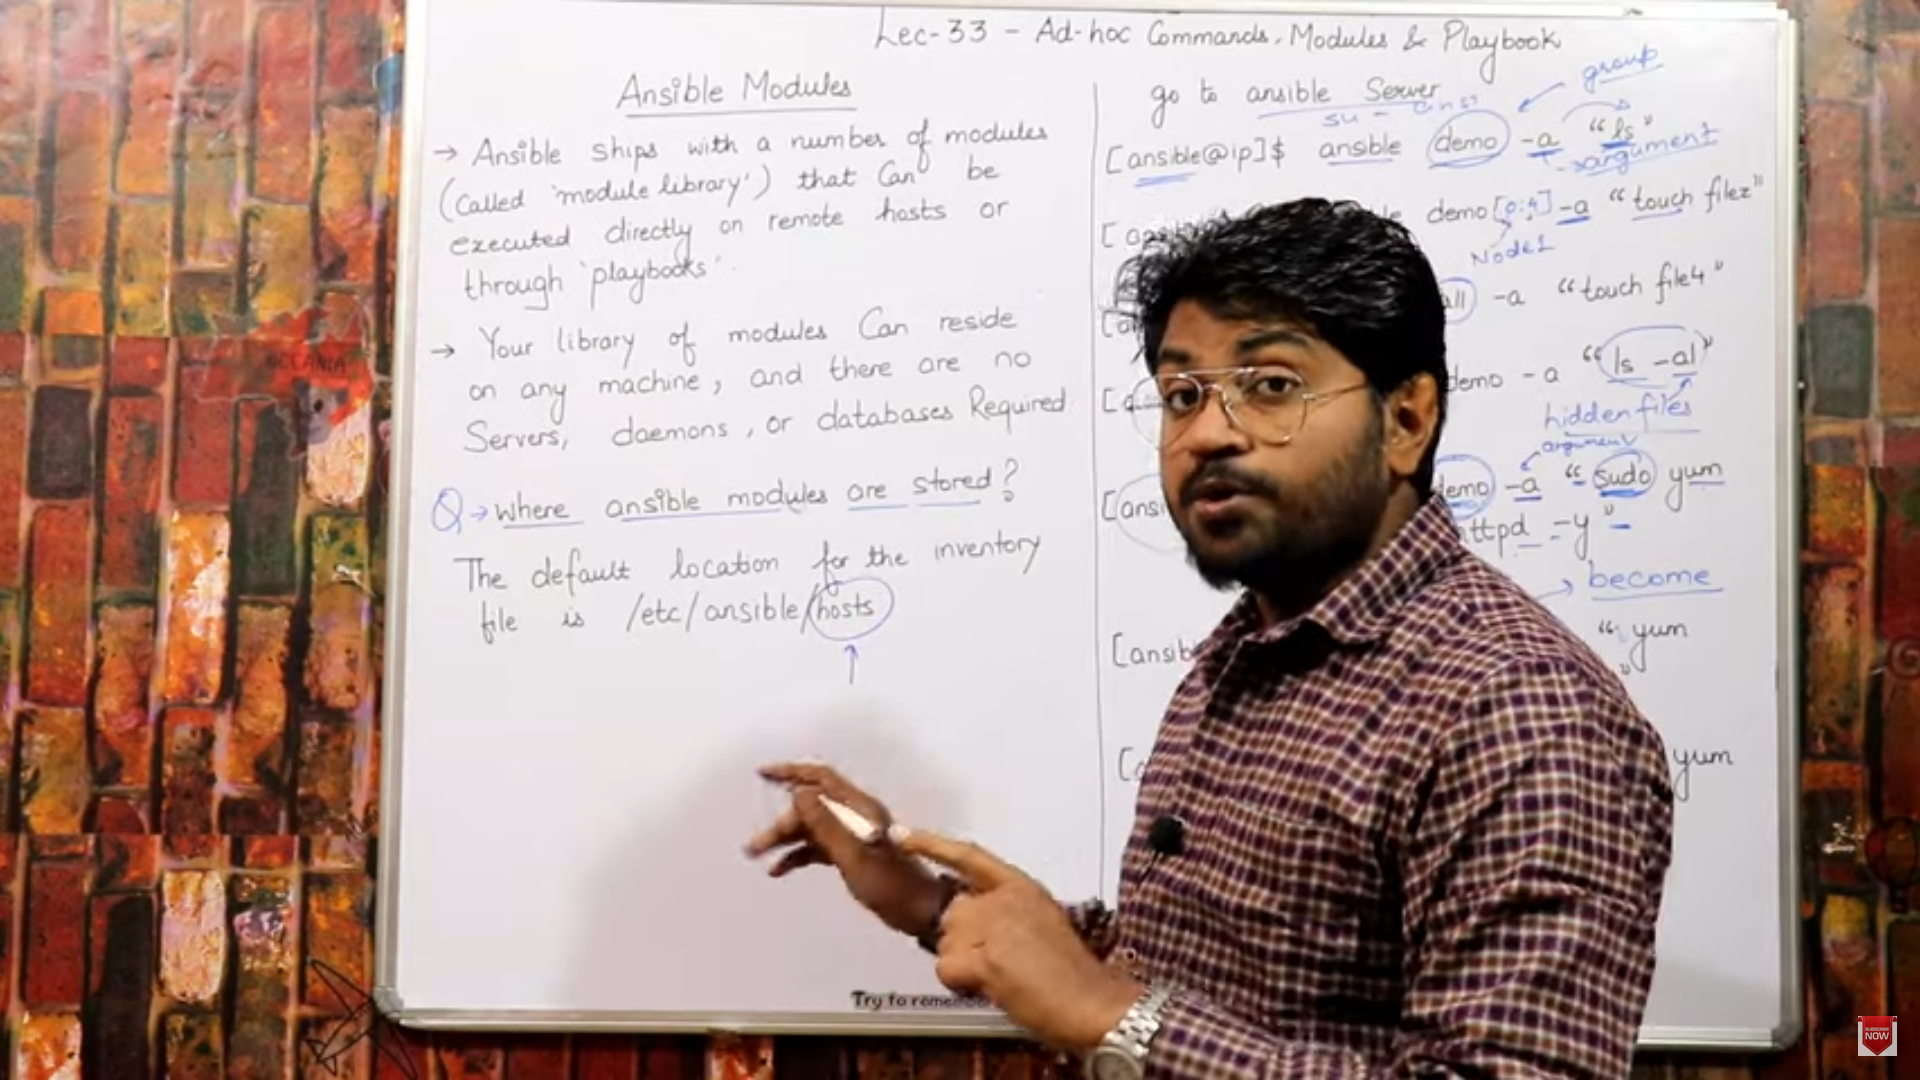 Lec-33 - Ad-hoc Commands, Modules & Playbook
Ansible Modules
→ Ansible ships with a number of modules
(Called 'module library') that Can be
executed directly on remote hosts or
through 'playbooks'.
→ Your library of modules Can reside
on any machine, and there are no
Servers, daemons, or databases Required
Q → Where ansible modules are stored?
The default location for the inventory
file is /etc/ansible/hosts
go to ansible Server
group
su -
[ansible@ip]$ ansible demo -a "ls"
argument
demo[0:4] -a "touch filez"
Node1
all -a "touch file4"
demo -a "ls -al"
hidden files
argument
demo -a "sudo yum
httpd -y"
→ become
[ansib
"yum
"
yum
Try to remember
OCEANIA
SUBSCRIBE
NOW